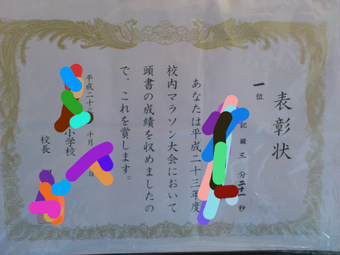 表彰状
一位
記録 三分二十一秒
あなたは平成二十三年度
校内マラソン大会において
頭書の成績を収めましたの
で、これを賞します。
平成二十 十月 日
小学校
校長